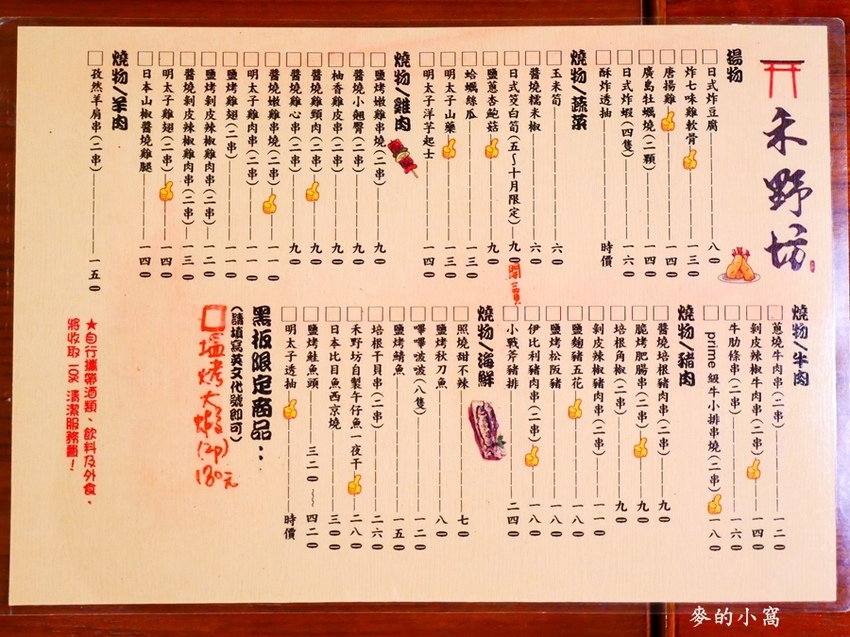 禾野坊
揚物
日式炸豆腐 八〇
炸七味雞軟骨 一三〇
唐揚雞 一四〇
廣島牡蠣燒(二顆) 一四〇
日式炸蝦(四隻) 一六〇
酥炸透抽 時價
燒物/蔬菜
玉米筍 六〇
醬燒糯米椒 六〇
日式茭白筍(五~十月限定) 九〇
鹽蔥杏鮑菇 九〇
蛤蠣絲瓜 一三〇
明太子山藥 一三〇
明太子洋芋起士 一四〇
燒物/雞肉
鹽烤嫩雞串燒(二串) 九〇
醬燒小翅臀(二串) 九〇
柚香雞皮串(二串) 九〇
醬燒雞頸肉(二串) 九〇
醬燒雞心串(二串) 九〇
醬燒嫩雞串燒(二串) 一一〇
明太子雞肉串(二串) 一一〇
鹽烤雞翅(二串) 一一〇
鹽烤剝皮辣椒雞肉串(二串) 一二〇
醬燒剝皮辣椒雞肉串(二串) 一三〇
明太子雞翅(二串) 一四〇
日本山椒醬燒雞腿 一四〇
燒物/羊肉
孜然羊肩串(二串) 一五〇
燒物/牛肉
蔥燒牛肉串(二串) 一二〇
剝皮辣椒牛肉串(二串) 一四〇
牛肋條串(二串) 一六〇
prime 級牛小排串燒(二串) 一八〇
燒物/豬肉
醬燒培根豬肉串(二串) 九〇
脆烤肥腸串(二串) 九〇
培根角椒(二串) 九〇
剝皮辣椒豬肉串(二串) 一一〇
鹽麴豬五花 一八〇
鹽烤松阪豬 一八〇
伊比利豬肉串(二串) 一八〇
小戰斧豬排 二四〇
燒物/海鮮
照燒甜不辣 七〇
鹽烤秋刀魚 八〇
嗶嗶啵啵(八隻) 一二〇
鹽烤鯖魚 一五〇
培根干貝串(二串) 二六〇
禾野坊自製午仔魚一夜干 二八〇
日本比目魚西京燒 三〇〇
鹽烤鮭魚頭 三二〇~四二〇
明太子透抽 時價
黑板限定商品:
(請填寫英文代號即可)
塩烤大蝦(2卯) 180元
★自行攜帶酒類、飲料及外食,
將收取10% 清潔服務費!
麥的小窩